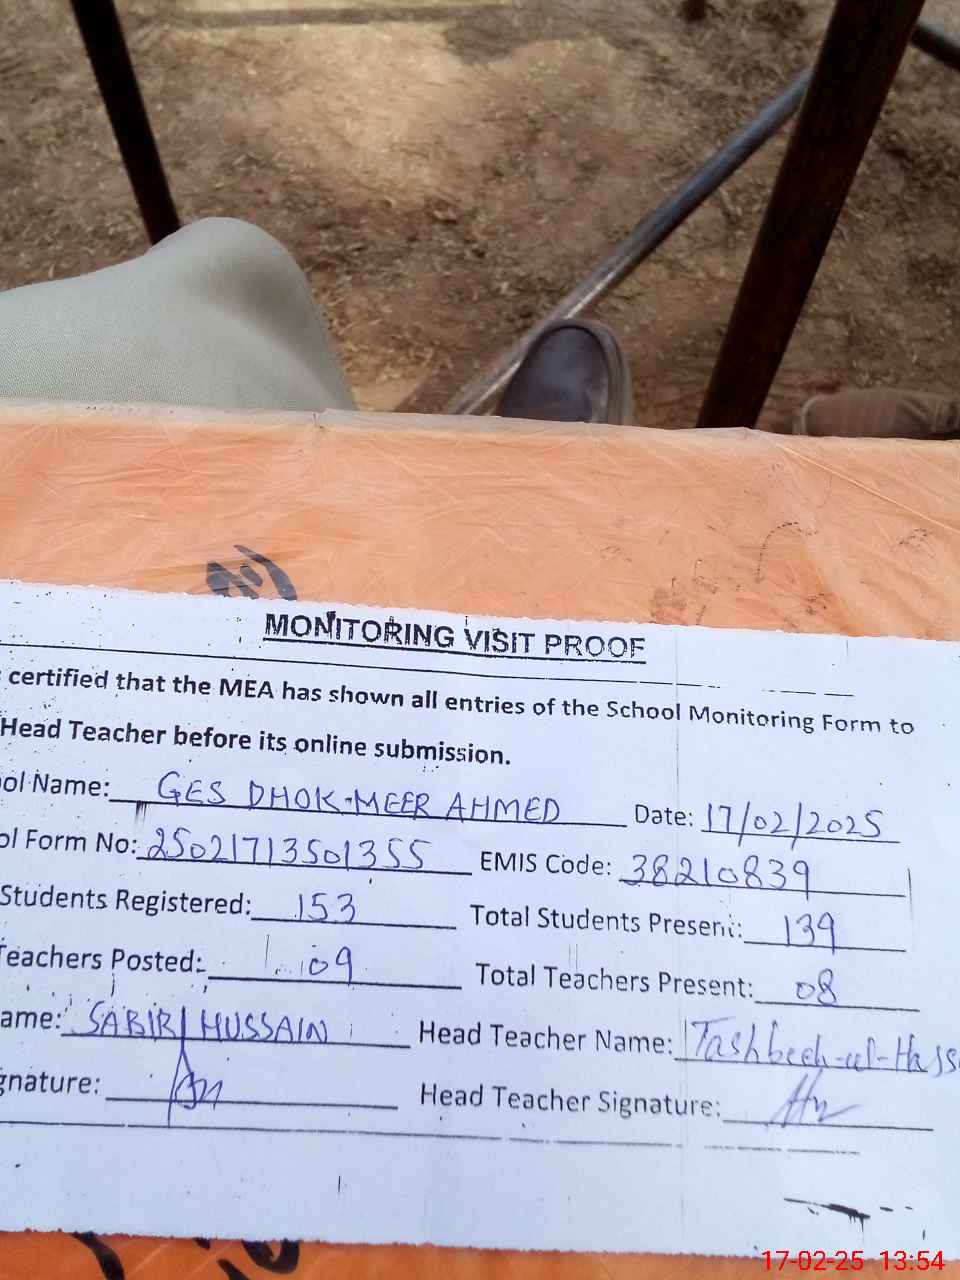 MONITORING VISIT PROOF
certified that the MEA has shown all entries of the School Monitoring Form to
Head Teacher before its online submission.
ol Name: GES DHOK-MEER AHMED Date: 17/02/2025
ol Form No: 25021713501355 EMIS Code: 38210839
Students Registered: 153 Total Students Present: 139
Teachers Posted: 09 Total Teachers Present: 08
ame: SABIR HUSSAIN Head Teacher Name: Tashbeeh-ul-Hass
gnature: Head Teacher Signature:
17-02-25 13:54